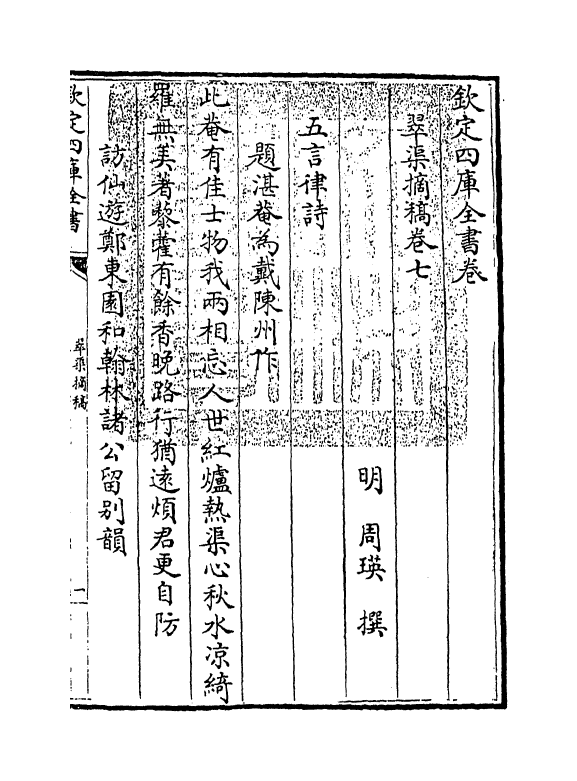 欽定四庫全書卷
翠渠摘稿卷七
明 周瑛 撰
五言律詩
題湛菴為戴陳州作
此菴有佳士物我兩相忘人世紅爐熱渠心秋水凉綺
羅無美著藜藿有餘香晚路行猶遠煩君更自防
訪仙遊鄭東園和翰林諸公留别韻
欽定四庫全書
翠渠摘稿
一